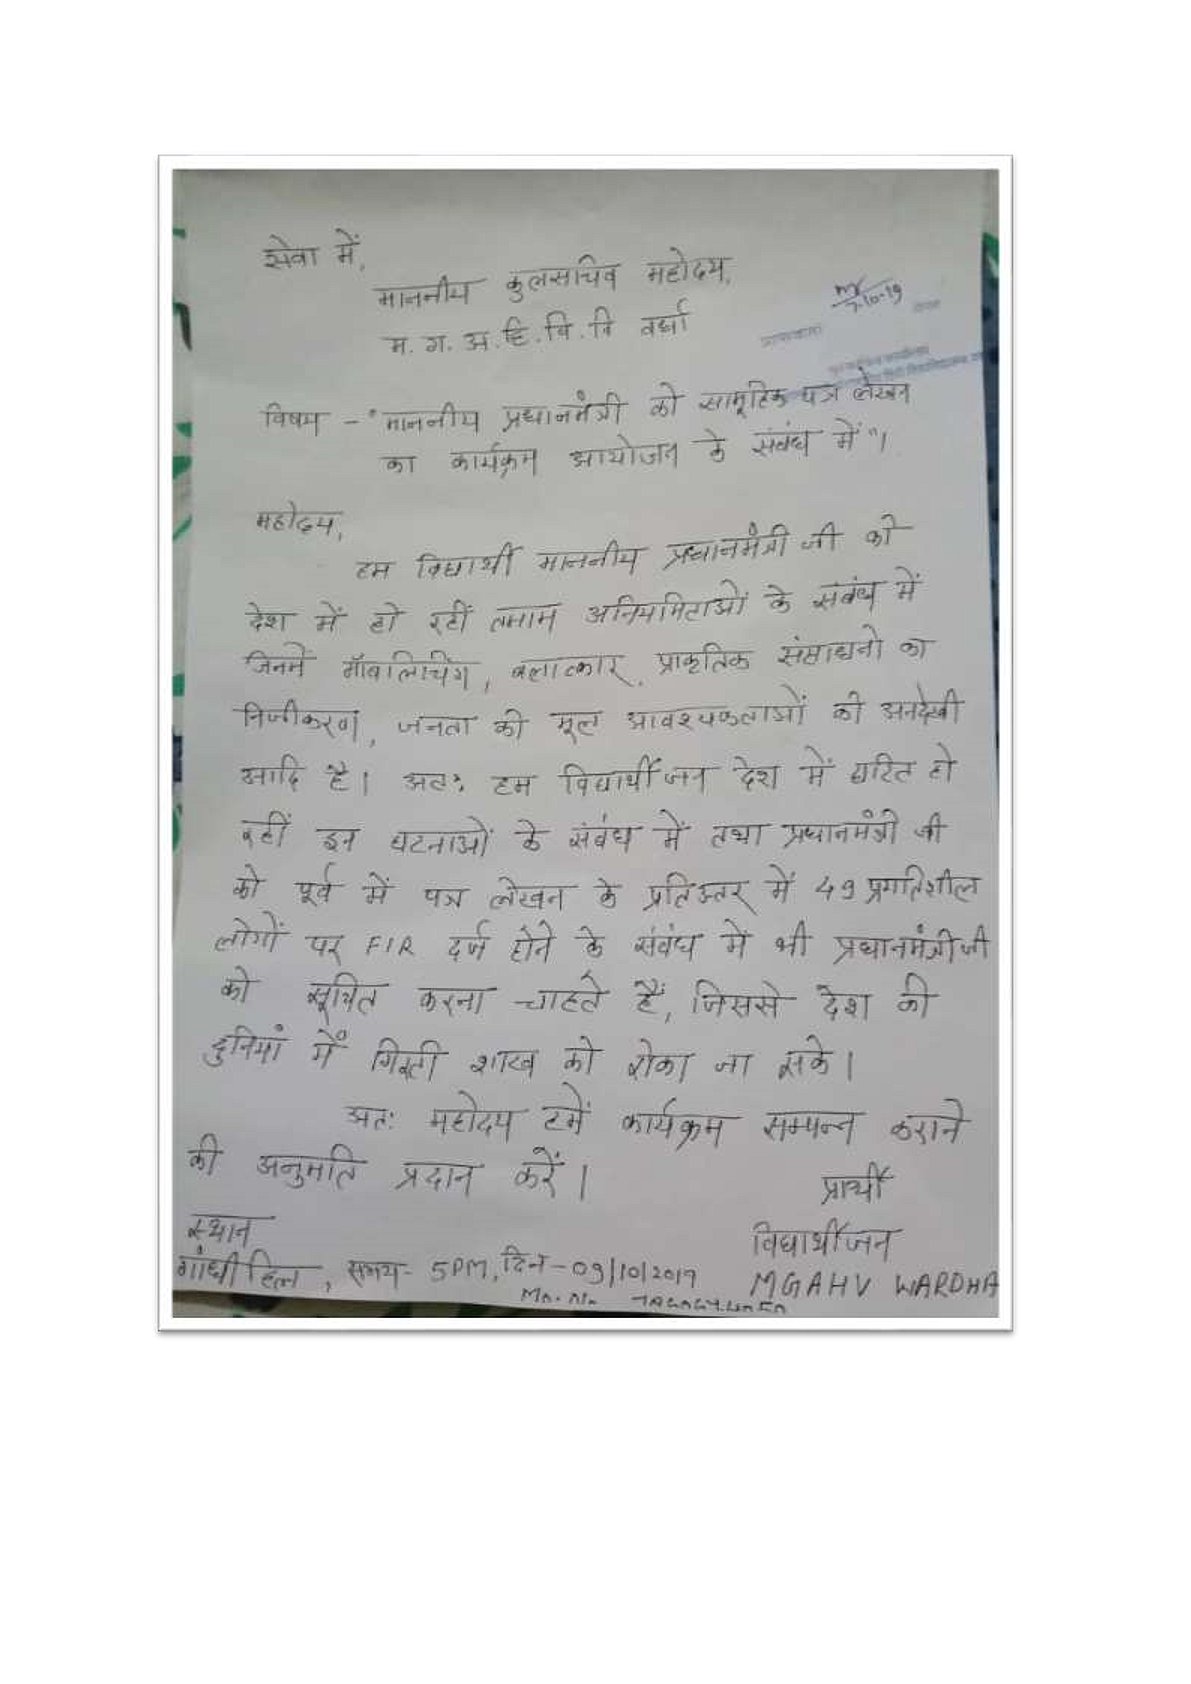 सेवा में,
माननीय कुलसचिव महोदय,
म. ग. अ. हि. वि. वि वर्धा
7-10-19
विषय - "माननीय प्रधानमंत्री को सामूहिक पत्र लेखन
का कार्यक्रम आयोजन के संबंध में"।
महोदय,
हम विद्यार्थी माननीय प्रधानमंत्री जी को
देश में हो रहीं तमाम अनियमिताओं के संबंध में
जिनमें मॉबलिचिंग, बलात्कार, प्राकृतिक संसाधनो का
निजीकरण, जनता की मूल आवश्यकताओं की अनदेखी
आदि है। अतः हम विद्यार्थीजन देश में घटित हो
रहीं इन घटनाओं के संबंध में तथा प्रधानमंत्री जी
को पूर्व में पत्र लेखन के प्रतिउत्तर में 49 प्रगतिशील
लोगों पर FIR दर्ज होने के संबंध में भी प्रधानमंत्रीजी
को सूचित करना चाहते हैं, जिससे देश की
दुनियां में गिरती शाख को रोका जा सके।
अतः महोदय हमें कार्यक्रम सम्पन्न कराने
की अनुमति प्रदान करें।
प्रार्थी
स्थान
विद्यार्थीजन
गांधी हिल, समय- 5PM, दिन-09/10/2019
MGAHV WARDHA